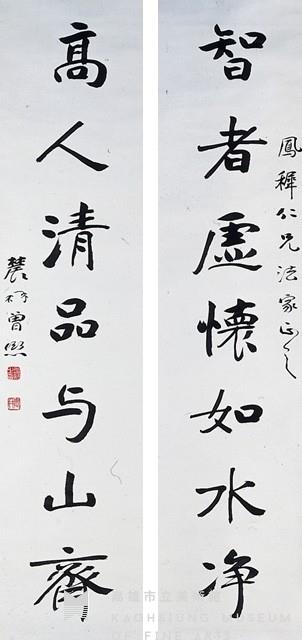 鳳穉仁兄法家正之
智者虛懷如水净
高人清品与山齊
農髯曾熙
高雄市立美術館
KAOHSIUNG MUSEUM
OF FINE ARTS